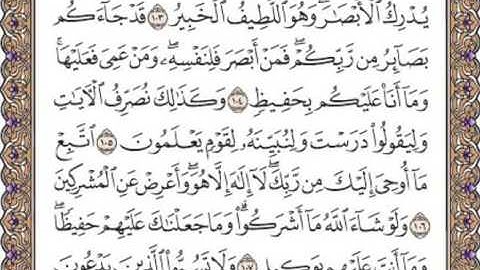 يُدْرِكُ ٱلْأَبْصَٰرَ ۖ وَهُوَ ٱللَّطِيفُ ٱلْخَبِيرُ ۝١٠٣ قَدْ جَآءَكُم
بَصَآئِرُ مِن رَّبِّكُمْ ۖ فَمَنْ أَبْصَرَ فَلِنَفْسِهِۦ ۖ وَمَنْ عَمِىَ فَعَلَيْهَا ۚ
وَمَآ أَنَا۠ عَلَيْكُم بِحَفِيظٍ ۝١٠٤ وَكَذَٰلِكَ نُصَرِّفُ ٱلْءَايَٰتِ
وَلِيَقُولُوا۟ دَرَسْتَ وَلِنُبَيِّنَهُۥ لِقَوْمٍ يَعْلَمُونَ ۝١٠٥ ٱتَّبِعْ
مَآ أُوحِىَ إِلَيْكَ مِن رَّبِّكَ ۖ لَآ إِلَٰهَ إِلَّا هُوَ ۖ وَأَعْرِضْ عَنِ ٱلْمُشْرِكِينَ
۝١٠٦ وَلَوْ شَآءَ ٱللَّهُ مَآ أَشْرَكُوا۟ ۗ وَمَا جَعَلْنَٰكَ عَلَيْهِمْ حَفِيظًا ۖ
وَمَآ أَنتَ عَلَيْهِم بِوَكِيلٍ ۝١٠٧ وَلَا تَسُبُّوا۟ ٱلَّذِينَ يَدْعُونَ